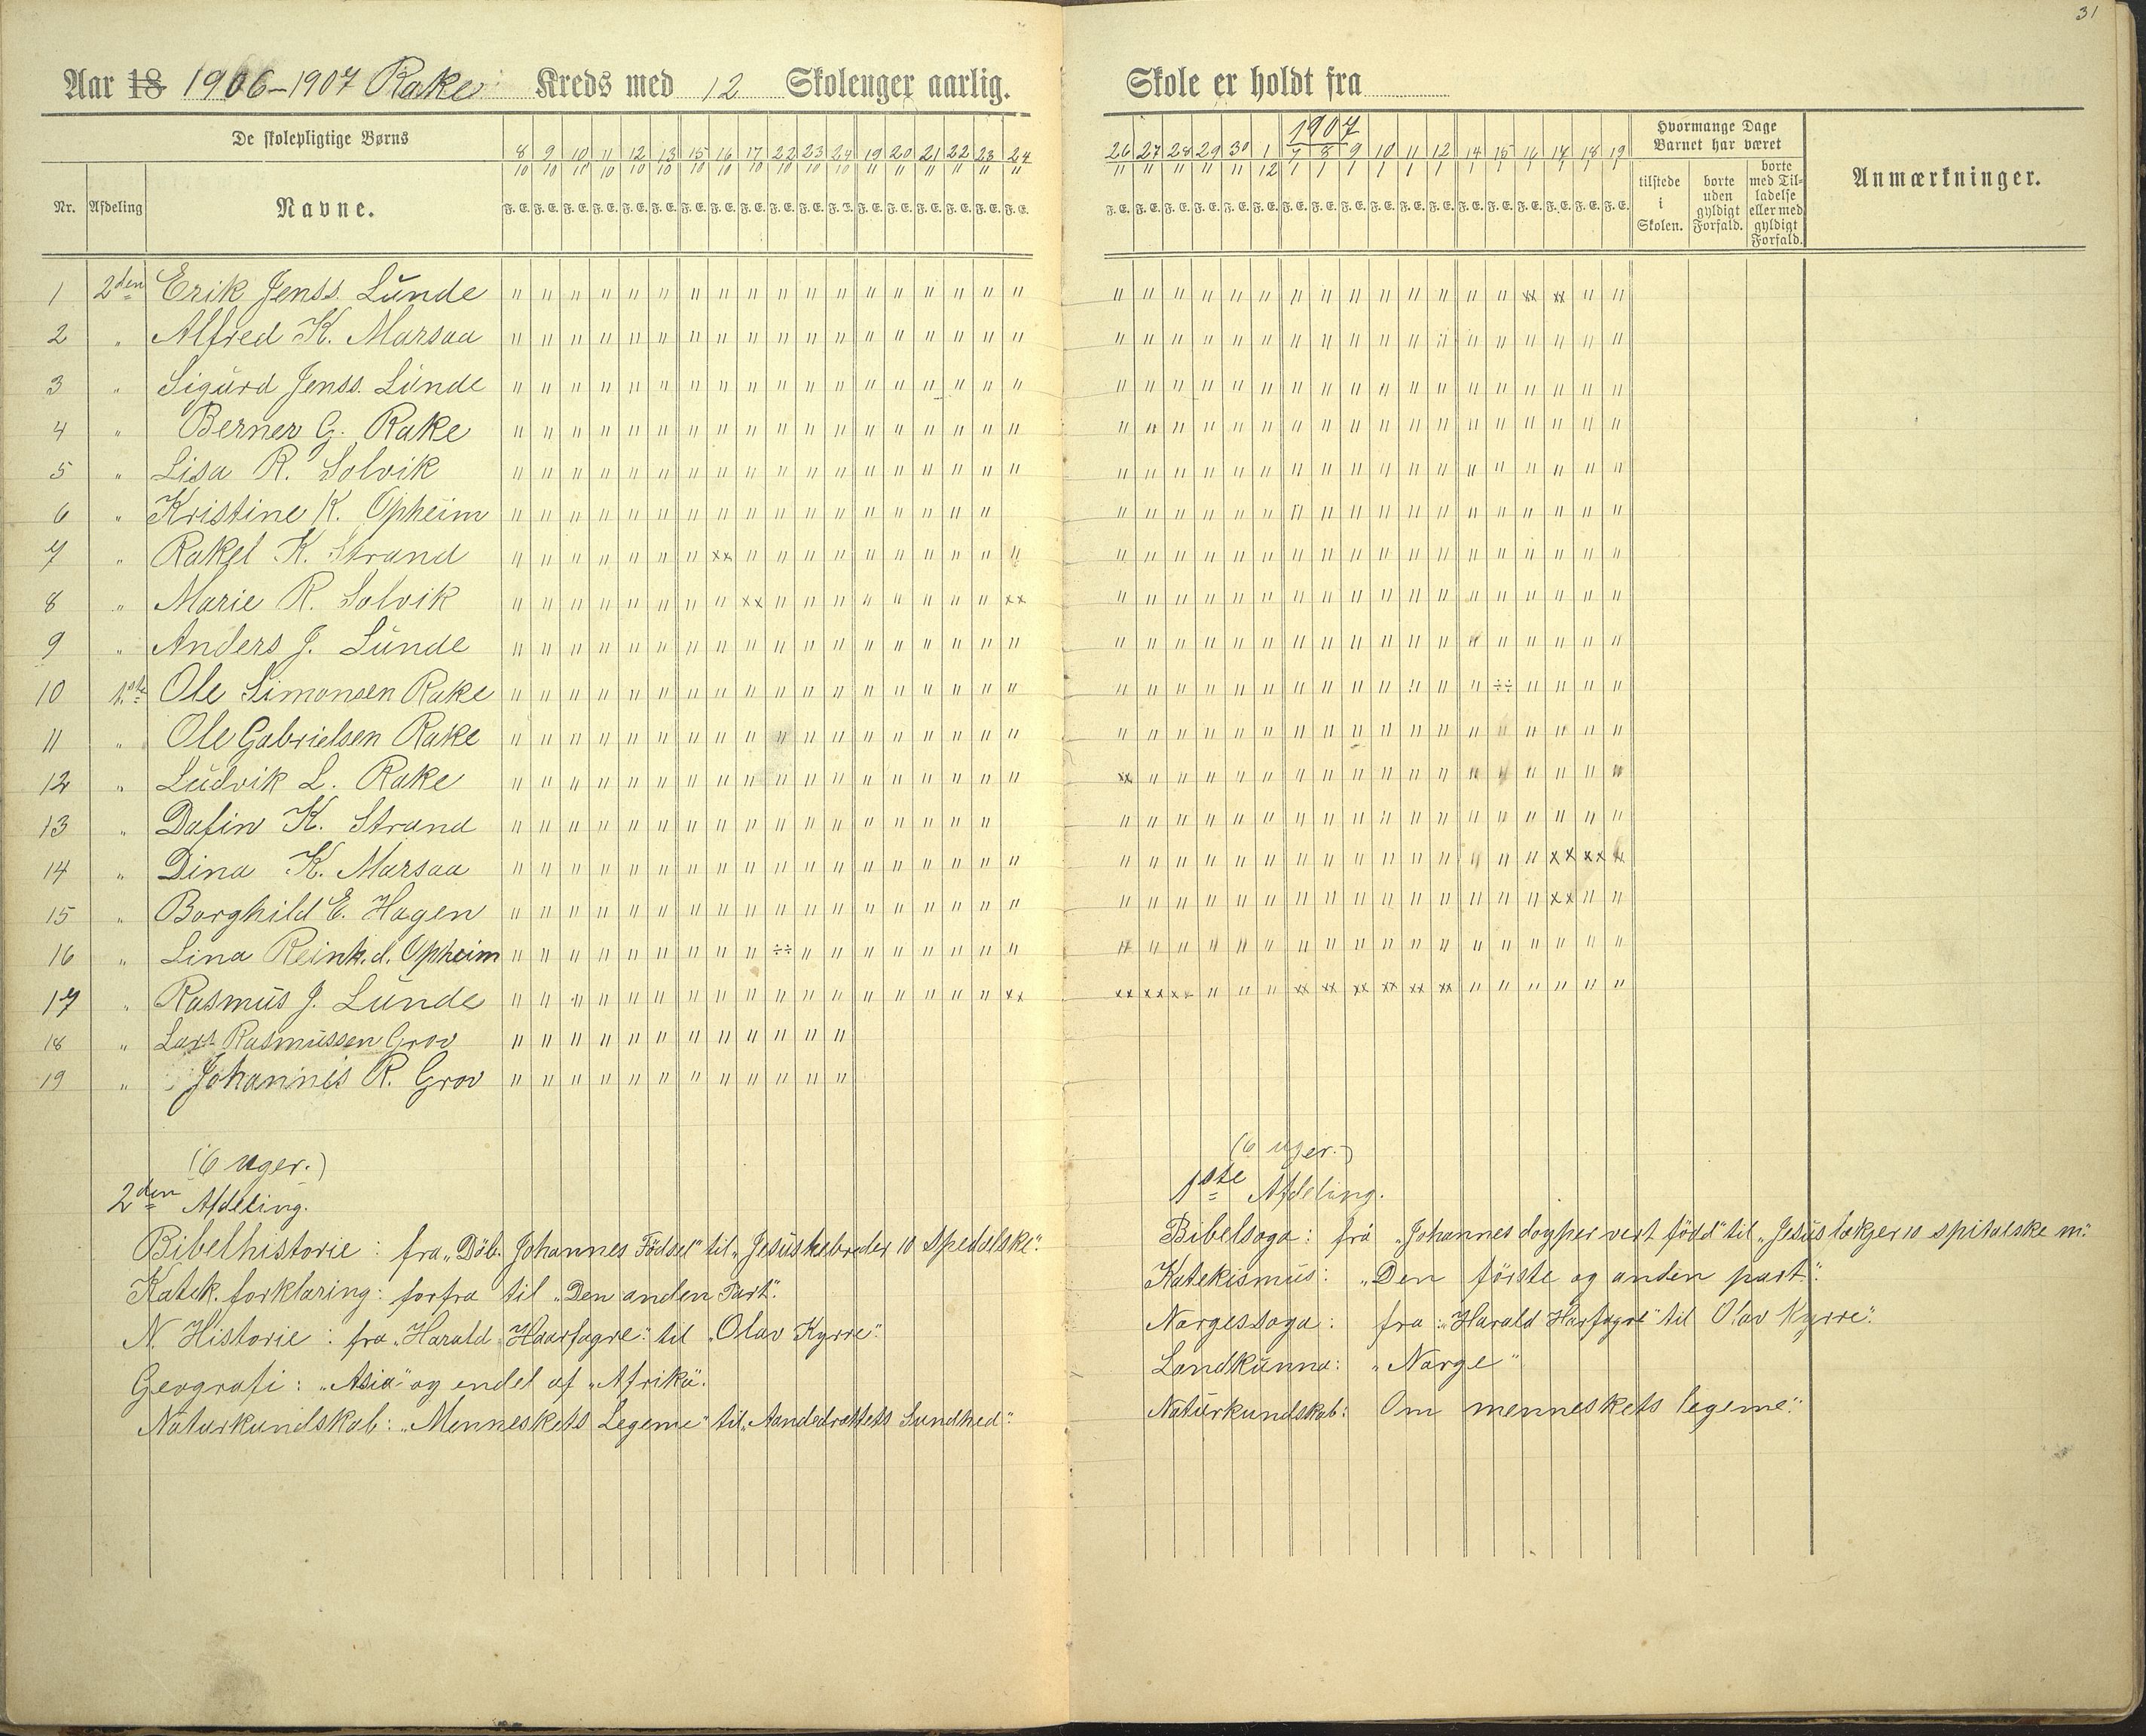 31
Aar 18 1906-1907 Rake Kreds med 12 Skoleuger aarlig.
Skole er holdt fra
De skolepligtige Børns
Nr. Afdeling Navne.
8 9 10 11 12 13 15 16 17 22 23 24 19 20 21 22 23 24
10 10 10 10 10 10 10 10 10 10 10 10 11 11 11 11 11 11
F. E. F. E. F. E. F. E. F. E. F. E. F. E. F. E. F. E. F. E. F. E. F. E. F. E. F. E. F. E. F. E. F. E. F. E.
1907
26 27 28 29 30 1 7 8 9 10 11 12 14 15 16 17 18 19
11 11 11 11 11 12 1 1 1 1 1 1 1 1 1 1 1 1
F. E. F. E. F. E. F. E. F. E. F. E. F. E. F. E. F. E. F. E. F. E. F. E. F. E. F. E. F. E. F. E. F. E. F. E.
Hvormange Dage
Barnet har været
tilstede
i
Skolen.
borte
uden
gyldigt
Forfald.
borte
med Til-
ladelse
eller med
gyldigt
Forfald.
Anmærkninger.
1 2den Erik Jenss. Lunde
2 " Alfred K. Marsaa
3 " Sigurd Jenss. Lunde
4 " Berner G. Rake
5 " Lisa R. Solvik
6 " Kristine K. Opheim
7 " Rakel K. Strand
8 " Marie R. Solvik
9 " Anders J. Lunde
10 1ste Ole Simonsen Rake
11 " Ole Gabrielsen Rake
12 " Ludvik L. Rake
13 " Dafin K. Strand
14 " Dina K. Marsaa
15 " Borghild E. Hagen
16 " Lina Reink.d. Opheim
17 " Rasmus J. Lunde
18 " Lars Rasmussen Grov
19 " Johannes R. Grov
(6 uger.)
2den Afdeling.
Bibelhistorie: fra „Döb. Johannes Födsel" til „Jesus helbreder 10 Spedalske".
Katek. forklaring: forfra til „Den anden Part".
N. Historie: fra „Harald Haarfagre" til „Olav Kyrre".
Geografi: „Asia" og endel af „Afrika".
Naturkundskab: „Menneskets Legeme" til „Aandedrættets Sundhed".
(6 uger.)
1ste Afdeling.
Bibelsoga: frå „Johannes døyper vert född" til „Jesus lækjer 10 spitalske m."
Katekismus: „Den förste og anden part".
Norgessoga: fra „Harald Harfagre" til Olav Kyrre".
Landkunna: „Norge"
Naturkundskab: Om menneskets legeme".